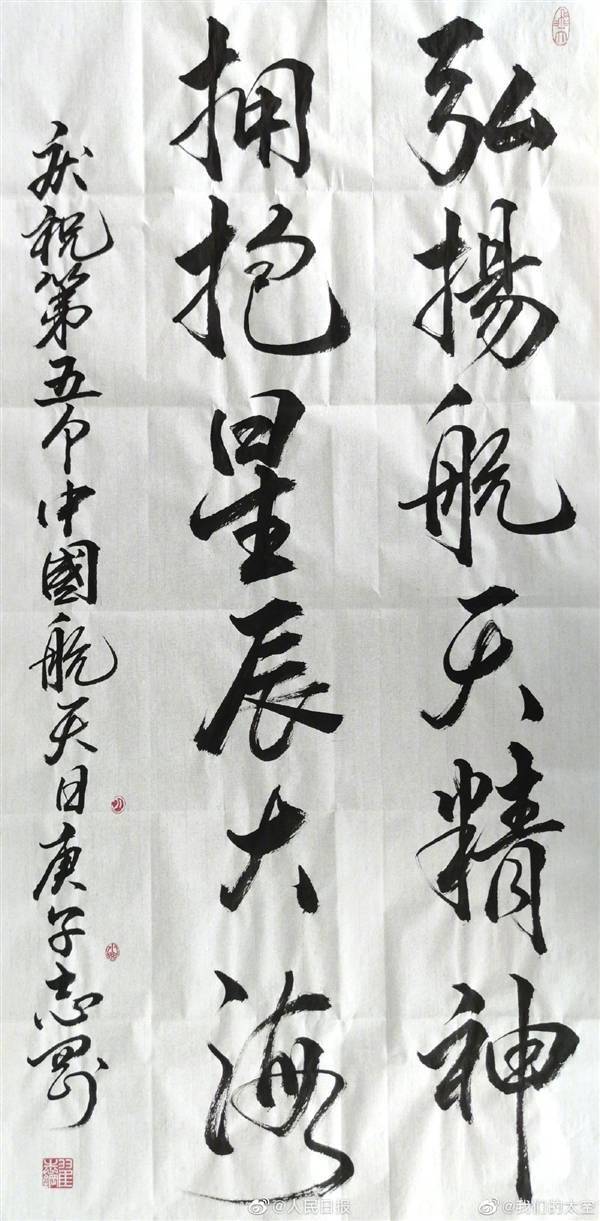 弘揚航天精神
拥抱星辰大海
庆祝第五个中國航天日庚子志剛
@人民日报
@我们的太空